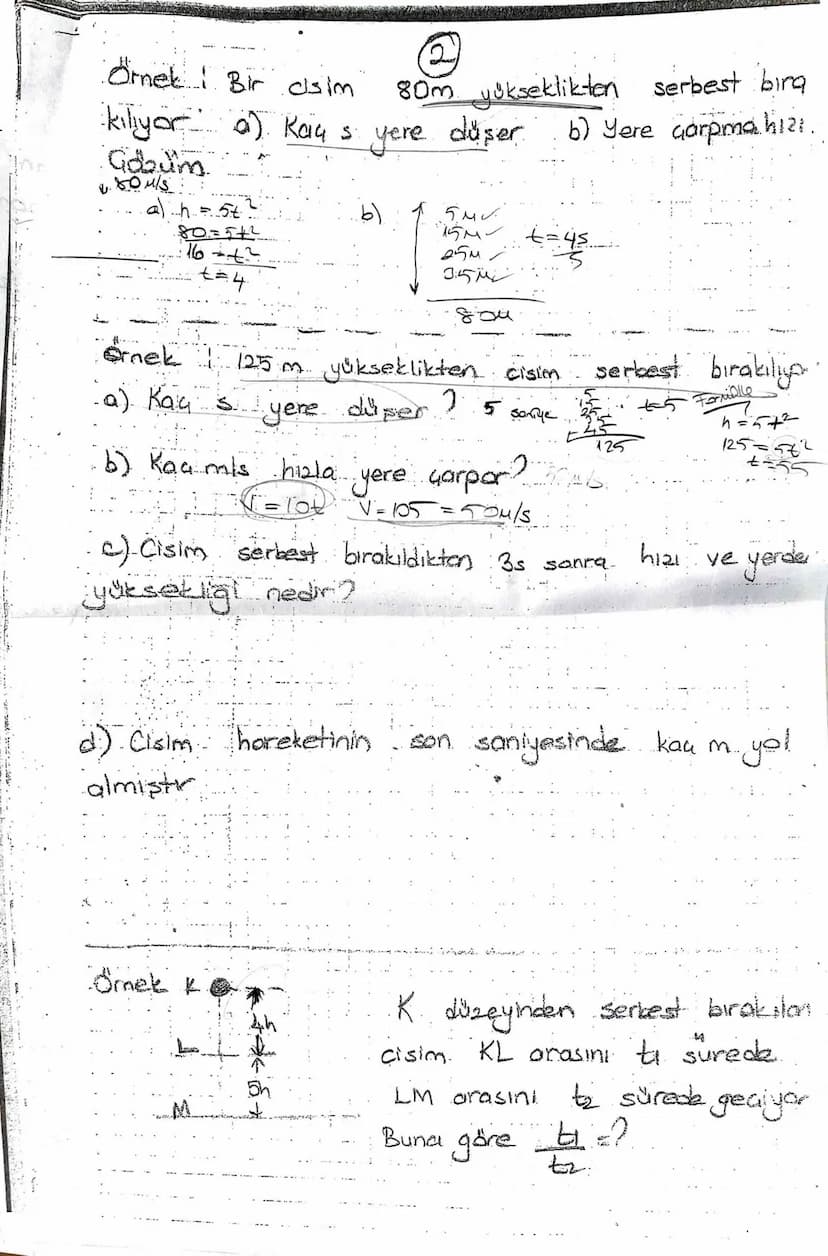 2
Örnek : Bir cisim 80m yükseklikten serbest bıra
kılıyor a) Kaç s yere düşer b) Yere çarpma hızı.
Çözüm
80 M/s
a) h = 5t²
80 = 5t²
16 = t²
t = 4
b) 5M
15M
25M
35M
80M
t = 4s
Örnek : 125 m yükseklikten cisim serbest bırakılıyo
a) Kaç s yere düşer? 5 saniye
5
15
25
45
125
t=5
Formülle
h = 5t²
125 = 5t²
t = 5s
b) Kaç m/s hızla yere çarpar?
V = 10t V = 105 = 50M/s
c) Cisim serbest bırakıldıktan 3s sonra hızı ve yerde
yüksekliği nedir?
d) Cisim hareketinin son saniyesinde kaç m yol
almıştır
Örnek K
4h
L
5h
M
K düzeyinden serbest bırakılan
cisim KL arasını t1 sürede
LM arasını t2 sürede geçiyor
Buna göre t1/t2 = ?